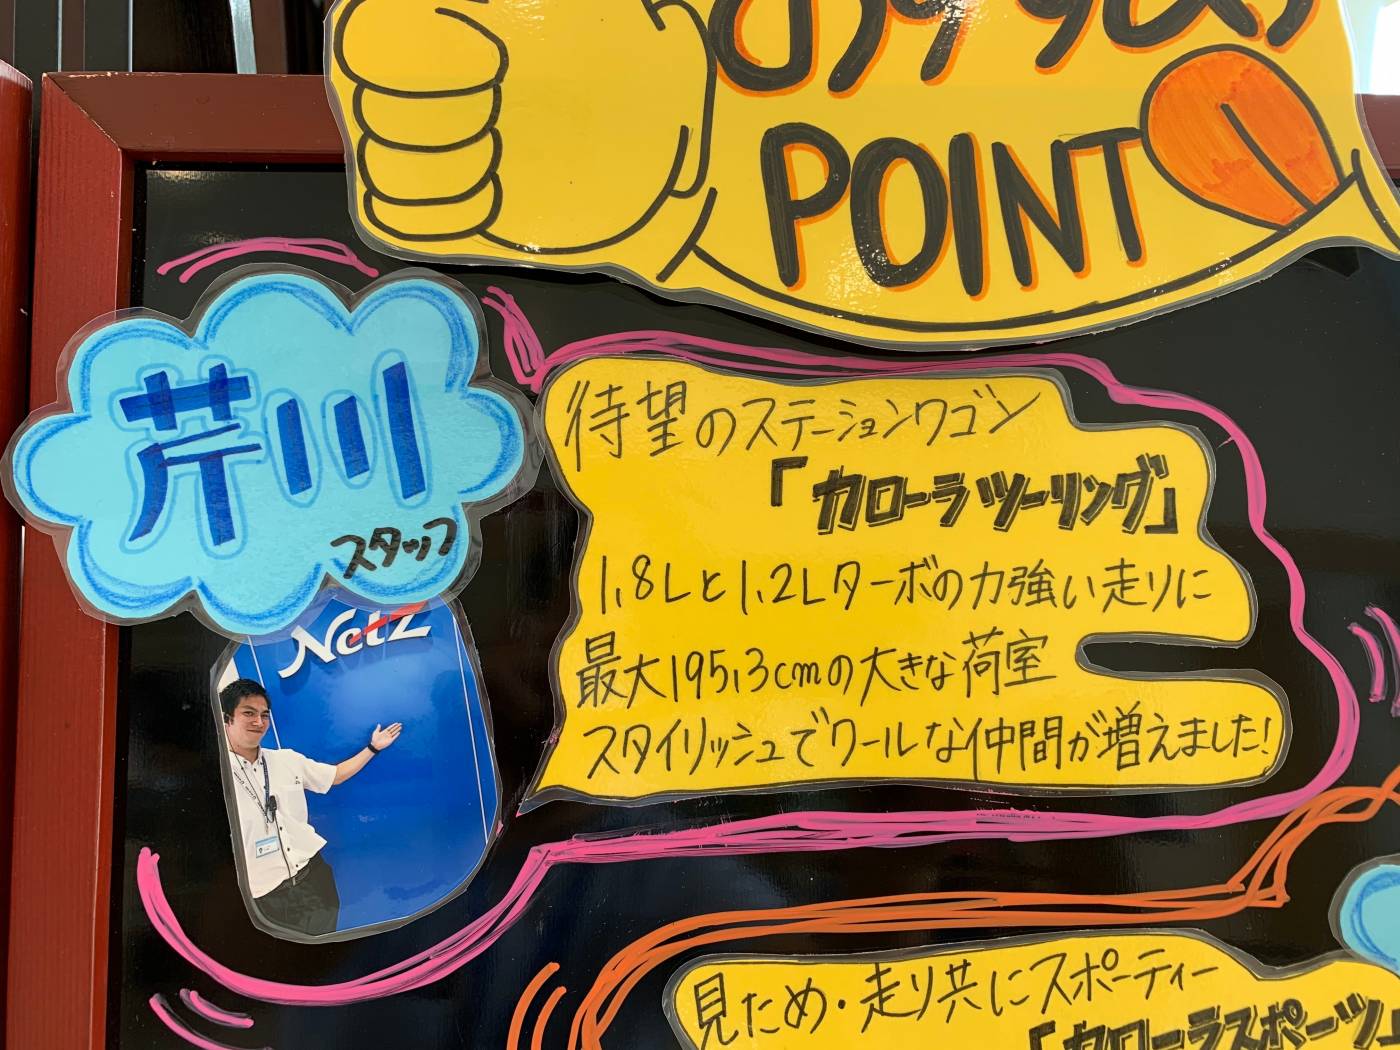 おすすめ
POINT
芹川
スタッフ
Netz
待望のステーションワゴン
「カローラツーリング」
1.8Lと1.2Lターボの力強い走りに
最大195.3cmの大きな荷室
スタイリッシュでクールな仲間が増えました!
見ため・走り共にスポーティー
「カローラスポーツ